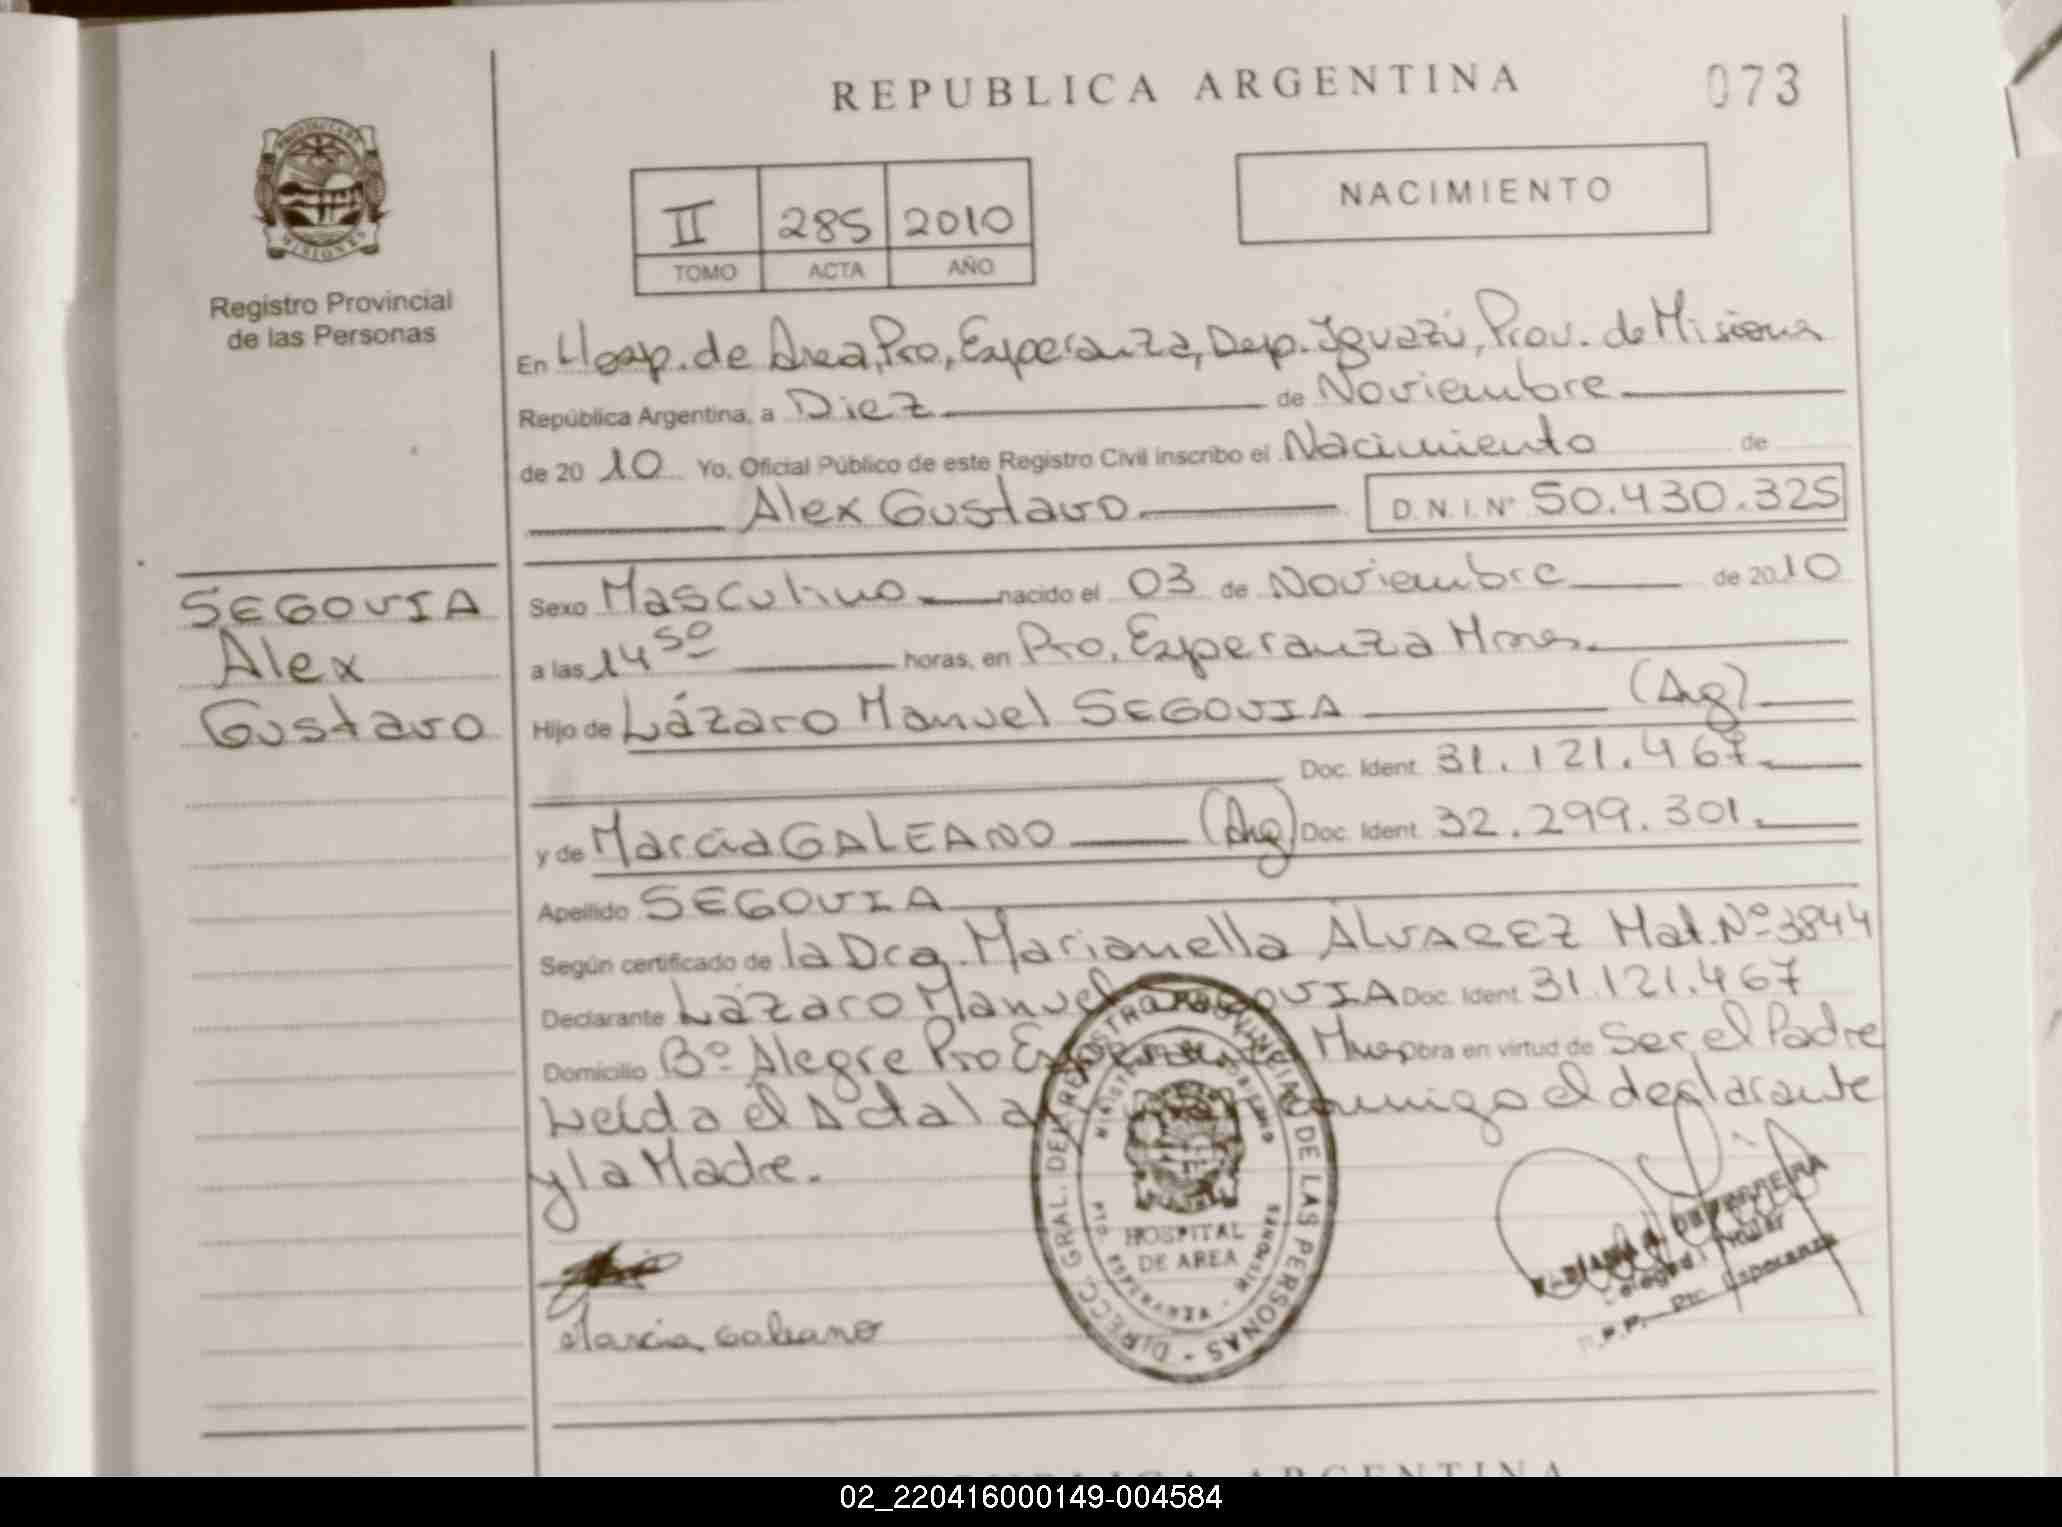 REPUBLICA ARGENTINA
073
NACIMIENTO
II 285 2010
TOMO ACTA AÑO
Registro Provincial
de las Personas
En Hosp. de Area, Pto, Esperanza, Dep. Iguazú, Prov. de Misiones
República Argentina, a Diez de Noviembre
de 2010 Yo, Oficial Público de este Registro Civil inscribo el Nacimiento de
Alex Gustavo D.N.I. Nº 50.430.325
SEGOVIA
Alex
Gustavo
Sexo Masculino nacido el 03 de Noviembre de 2010
a las 14 50 horas, en Pto, Esperanza Mnes.
Hijo de Lázaro Manuel SEGOVIA (Arg)
Doc. Ident. 31.121.467
y de Marcia GALEANO (Arg) Doc. Ident. 32.299.301
Apellido SEGOVIA
Según certificado de la Dra. Marianella ÁLVAREZ Mat. Nº 3844
Declarante Lázaro Manuel SEGOVIA Doc. Ident. 31.121.467
Domicilio Bº Alegre Pto Esperanza Mnes obra en virtud de Ser el Padre
Leída el Acta la conmigo el declarante
y la Madre.
DIRECC. GRAL. DEL REGISTRO PROVINCIAL DE LAS PERSONAS
HOSPITAL
DE AREA
Marcia Galeano
Pto. Esperanza
02_220416000149-004584